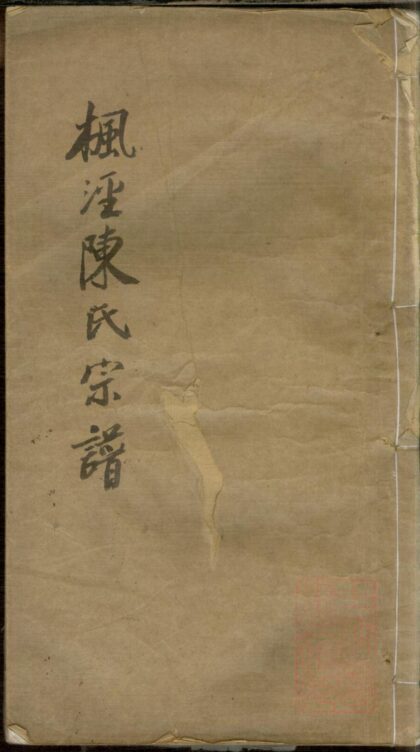 楓涇陳氏宗譜